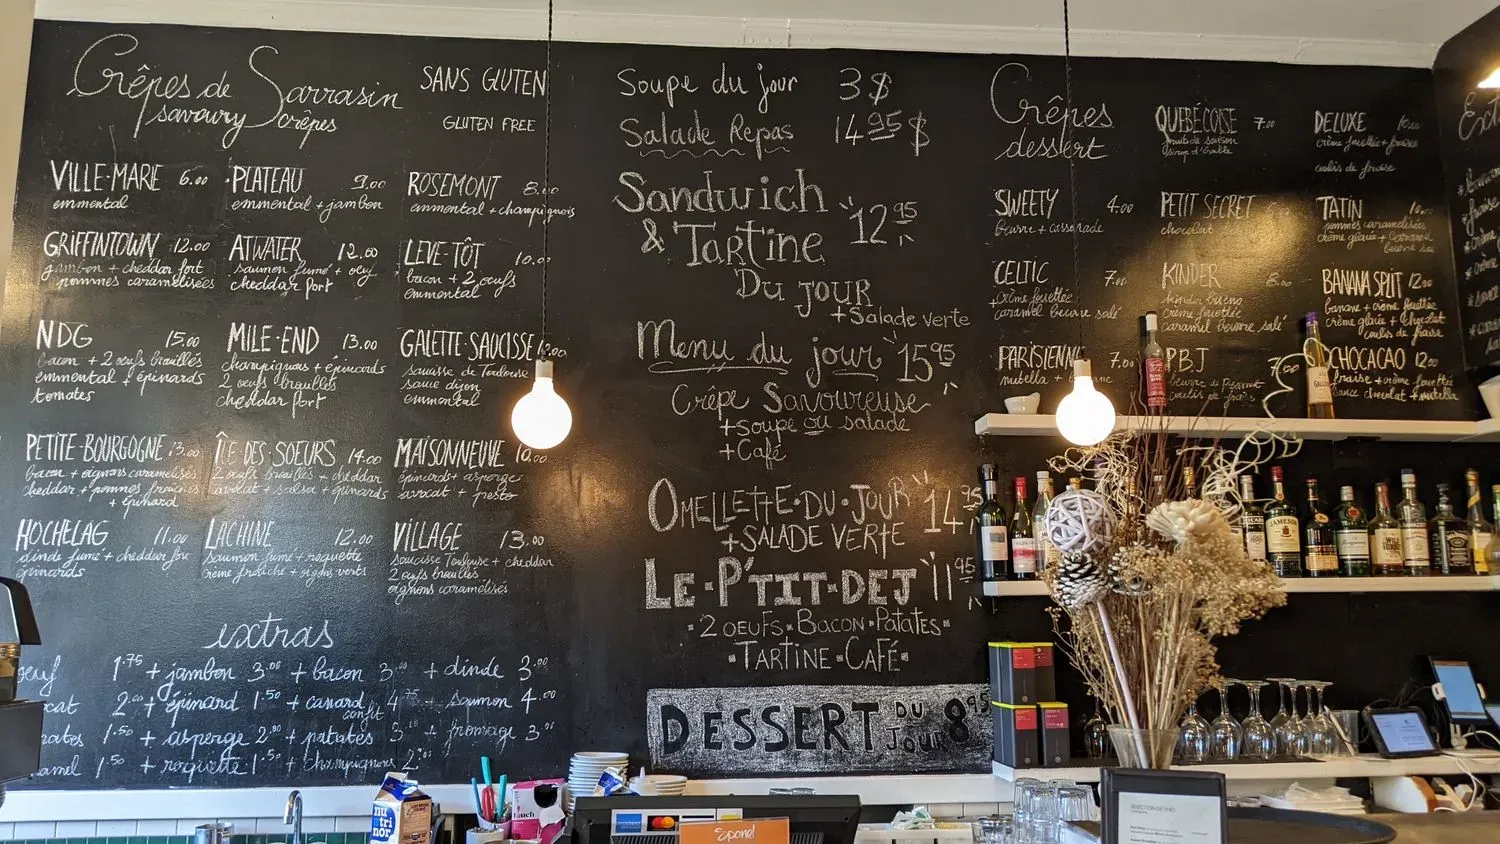 Crêpes de Sarrasin
savoury crêpes
SANS GLUTEN
GLUTEN FREE
VILLE-MARIE 6.00
emmental
PLATEAU 9.00
emmental + jambon
ROSEMONT 8.00
emmental + champignons
GRIFFINTOWN 12.00
jambon + cheddar fort
pommes caramélisées
ATWATER 12.00
saumon fumé + oeuf
cheddar fort
LEVE-TÔT 10.00
bacon + 2 oeufs
emmental
NDG 15.00
bacon + 2 oeufs brouillés
emmental + épinards
tomates
MILE-END 13.00
champignons + épinards
2 oeufs brouillés
cheddar fort
GALETTE-SAUCISSE
saucisse de Toulouse
sauce dijon
emmental
PETITE-BOURGOGNE 13.00
bacon + oignons caramélisés
cheddar + pommes
+ épinard
ÎLE DES SOEURS 14.00
2 oeufs brouillés + cheddar
avocat + salsa + épinards
MAISONNEUVE 10.00
épinards + asperge
avocat + pesto
HOCHELAG 11.00
dinde fumé + cheddar
épinards
LACHINE 12.00
saumon fumé + roquette
crème fraîche + oignons verts
VILLAGE 13.00
saucisse Toulouse + cheddar
2 oeufs brouillés
oignons caramélisés
extras
oeuf 1.75 + jambon 3.00 + bacon 3.00 + dinde 3.00
2.00 + épinard 1.50 + canard confit 4.75 + saumon 4.00
1.50 + asperge 2.00 + patates + fromage
1.50 + roquette 1.50 + champignons 2.00
Soupe du jour 3$
Salade Repas 14.95$
Sandwich
& Tartine 12.95
Du JOUR
+ Salade verte
Menu du jour 15.95
Crêpe Savoureuse
+ soupe ou salade
+ Café
OMELLETTE•DU•JOUR 14.95
+ SALADE VERTE
LE•P'TIT•DEJ 11.95
2 OEUFS•BACON•PATATES
TARTINE•CAFÉ
DESSERT DU JOUR 8.95
Crêpes
dessert
QUEBÉCOISE 7.00
fruits de saison
sirop d'érable
DELUXE
crème fouettée + fraises
coulis de fraise
SWEETY 4.00
beurre + cassonade
PETIT SECRET
chocolat
TATIN
pommes caramélisées
crème glacée + caramel
CELTIC 7.00
crème fouettée
caramel beurre salé
KINDER 8.00
kinder bueno
crème fouettée
caramel beurre salé
BANANA SPLIT 12.00
banane + crème fouettée
crème glacée + chocolat
coulis de fraise
PARISIENNE 7.00
nutella +
P.B.J
beurre de peanut
coulis de
CHOCACAO 12.00
fraise + crème fouettée
sauce chocolat + nutella
JAMESON
nutrinor
touch